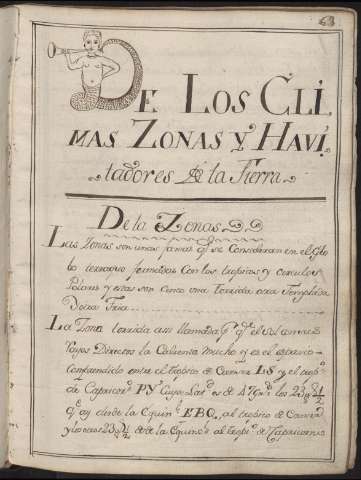 63
DE LOS CLI
MAS ZONAS Y HAVI
tadores de la Tierra
De la Zonas
Las Zonas son unas fajas q̃ se Consideran en el Glo
bo terraqueo formadas Con los tropicos y circulos
Polares y estas son cinco una torrida dos Templadas
Dos Frias
La Zona torrida assi llamada pr q̃ el Sol
rayos Directos la Calienta mucho y es el espacio
Comprendido entre el tropico de Cancer LS y el trop.o
de Capricor.o PY Cuya Lat es de 47 gr.s los 23 1/2
q̃ ay desde la Equin. EBQ, al tropico de Cancer
y los otros 23 1/2 de la Equinoc al tropi.o de Capricornio